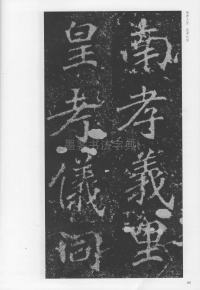 南孝義里
皇考儀同